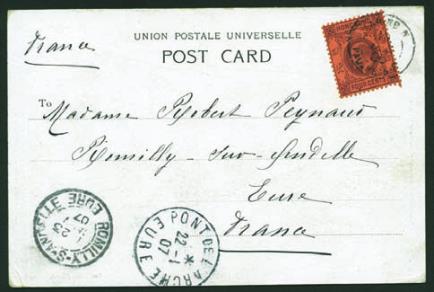 UNION POSTALE UNIVERSELLE
POST CARD
France
To
Madame Robert Peynaud
Romilly-sur-Andelle
Eure
France
ROMILLY-S-ANDELLE
07
EURE
PONT DE L'ARCHE
22-1
07
EURE